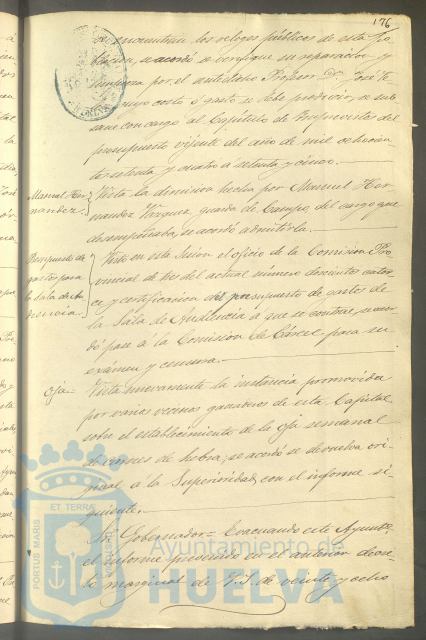 176
se encuentran los relojes públicos de esta Po-
blacion, se acordó se verifique su reparacion y
limpieza por el antedicho Profesor D. José
cuyo costo ó gasto se
con cargo al Capítulo de Imprevistos del
presupuesto vijente del año de mil ochocien-
tos setenta y cuatro á setenta y cinco.
Manuel Her-
nandez.
Vista la dimision hecha por Manuel Her-
nandez Vazquez, guarda de Campo, del cargo que
desempeñaba, se acordó admitirla.
Presupuesto de
gastos para
la Sala de Au-
diencia.
Visto en esta sesion el oficio de la Comision Pro-
vincial de tres del actual número doscientos cator-
ce y certificacion del presupuesto de gastos de
la Sala de Audiencia á que se contrae, acor-
dó pase á la Comision de Cárcel para su
exámen y censura.
Oja
Vista nuevamente la instancia promovida
por varios vecinos ganaderos de esta Capital
sobre el establecimiento de la oja semanal
de carnes de hebra, se acordó se devuelva ori-
ginal á la Superioridad, con el informe si-
guiente.
Sr. Gobernador = Evacuando este Ayunto.
el informe prevenido en el anterior decre-
to marginal de V.S. de veinte y ocho
PORTUS MARIS ET TERRAE
Ayuntamiento de
HUELVA